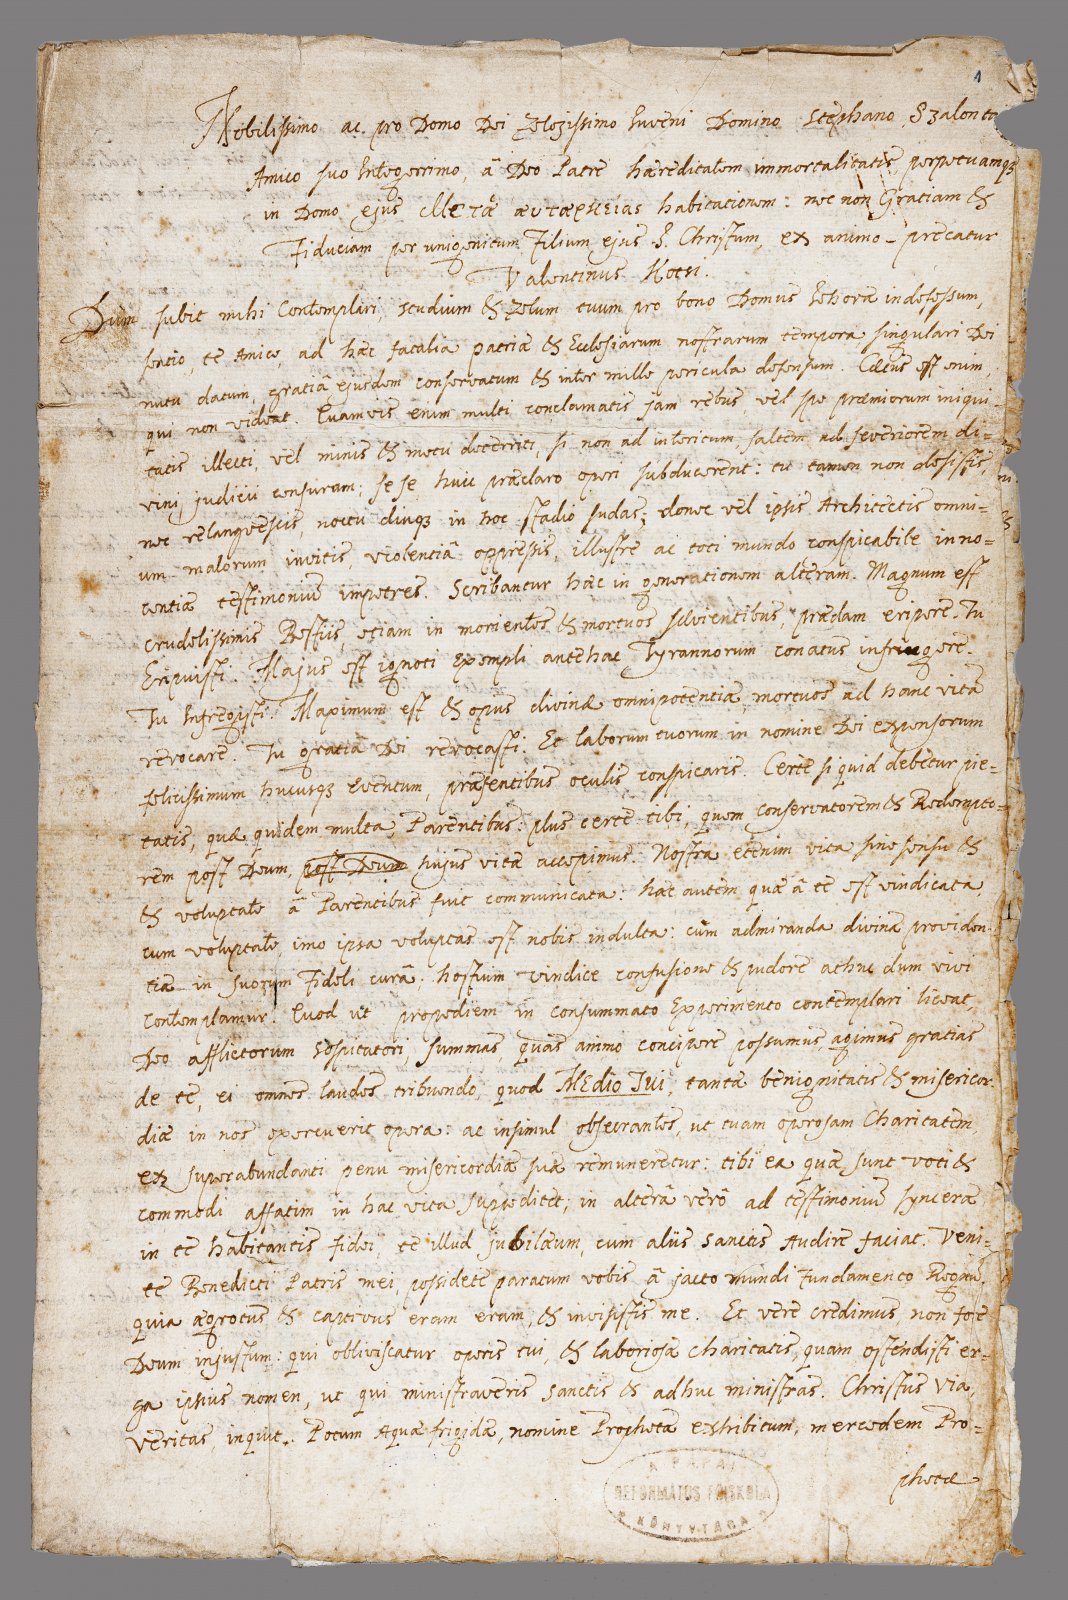 1
Nobilissimo ac pro Domo Dei Zelozissimo Iuveni Domino Stephano Szalontai
Amico suo Integerrimo, â Deo Patre hæreditatem immortalitatis, perpetuamqꝫ
in Domo ejus Μετὰ αυταρκείας habitationem: nec non Gratiam &
Fiduciam per unigenitum Filium ejus I. Christum, ex animo precatur
Valentinus Kotsi.
Dum subit mihi Contemplari, studium & Zelum tuum pro bono Domus Iehovæ indefessum,
sentio, te Amice, ad hæc fatalia patriæ & Ecclesiarum nostrarum tempora singulari Dei
nutu datum, gratiâ ejusdem conservatum & inter mille pericula defensum. Cæcus est enim,
qui non videat. Quamvis enim multi conclamatis jam rebus vel spe præmiorum iniqui-
tatis illecti, vel minis & metu deterriti, si non ad interitum, saltem ad severiorem di-
vini judicii censuram; se se huic præclaro operi subducerent: tu tamen non desistis,
nec relangvescis, noctu diuqꝫ in hoc stadio sudas; donec vel ipsis Architectis omni-
um malorum invitis, violentiâ oppressis, illustre ac toti mundo conspicabile inno-
centiæ testimonium impetres. Scribantur hæc in generationem alteram. Magnum est
crudelissimis Bestiis, etiam in momentos & mortuos sævientibus, prædam eripere Tu
Eripuisti. Majus est ignoti Exempli antehac Tyrannorum conatus infringere.
Tu Infregisti. Maximum est & opus divinæ omnipotentiæ, mortuos ad hanc vitã
revocare. Tu gratiâ Dei revocasti. Et laborum tuorum in nomine Dei expensorum
felicissimum hucusqꝫ Eventum, præsentibus oculis conspicaris. Certe si quid debetur pie-
tatis, quæ quidem multa, Parentibus: plus certe tibi, quem conservatorem & Redempto-
rem post Deum, post Deum hujus vitæ accepimus. Nostra etenim vita sine sensu &
& voluptate â Parentibus fuit communicata: hæc autem quæ â te est vindicata
cum voluptate, imo ipsa voluptas est nobis indulta: cum admiranda divinæ providen-
tiæ in suorum Fideli curâ. hostium vindice confusione & pudore athuc dum vivi
Contemplamur. Quod ut propediem in consummato Experimento contemplari liceat,
Deo afflictorum Sospitatori, summas quas animo concipere possumus, agimus gratias
de te, ei omnes laudes tribuendo, quod Medio Tui, tantæ benignitatis & misericor-
diæ in nos exercuerit opera: ac insimul obsecrantes, ut tuam operosam Charitatem,
ex superabundanti penu misericordiæ suæ remuneretur: tibi ea quæ sunt voti &
commodi affatim in hac vita suppeditet; in alterâ verô ad testimonium synceræ
in te habitantis fidei, te illud jubilæum, cum aliis Sanctis Audire faciat. Veni-
te Benedicti Patris mei, possidete paratum vobis â jacto mundi Fundamento Regnũ.
quia ægrotus & captivus eram eram, & invisistis me. Et vere credimus, non fore
Deum injustum: qui obliviscatur operis tui, & laboriosæ charitatis, quam ostendisti er-
ga ipsius nomen, ut qui ministraveris Sanctis & adhuc ministras. Christus Via,
Veritas, inquit. Potum Aquæ frigidæ, nomine Prophetæ exhibitum, mercedem Pro-
phetæ
A PÁPAI
REFORMATUS FŐISKOLA
KÖNYVTÁRA